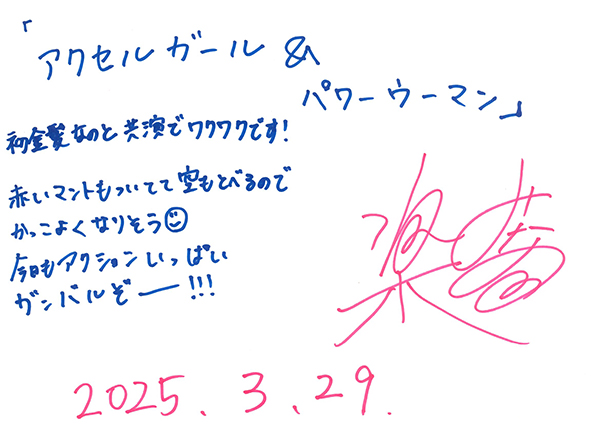 「アクセルガール &
パワーウーマン」
初金髪なのと共演でワクワクです！
赤いマントもついてて空もとべるので
かっこよくなりそう☺
今日もアクションいっぱい
ガンバルぞー!!!
2025.3.29.